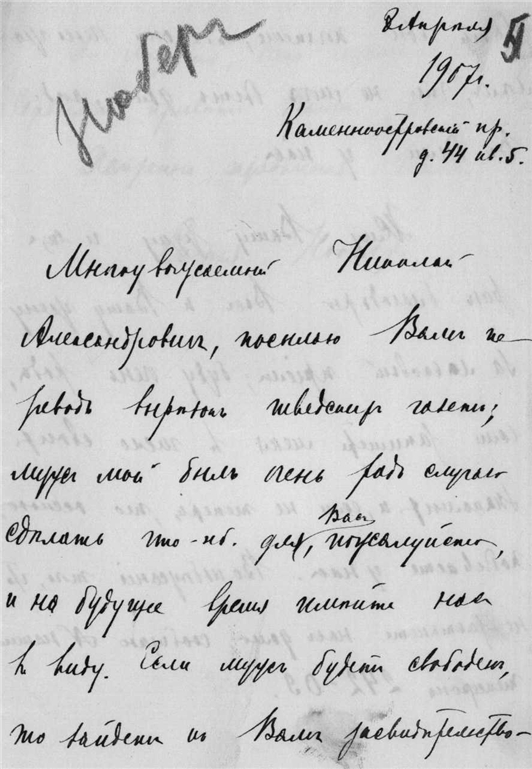 Шоберг
2 Апреля
1907г.
Каменноостровский пр.
д. 44 кв. 5.
Многоуважаемый Николай
Александровичъ, посылаю Вамъ пе-
реводъ вырѣзокъ шведскихъ газетъ;
мужъ мой былъ очень радъ случаю
сдѣлать что-нб. для Васъ, пожалуйста,
и на будущее время имѣйте насъ
въ виду. Если мужъ будетъ свободенъ,
то зайдетъ къ Вамъ засвидѣтельство-